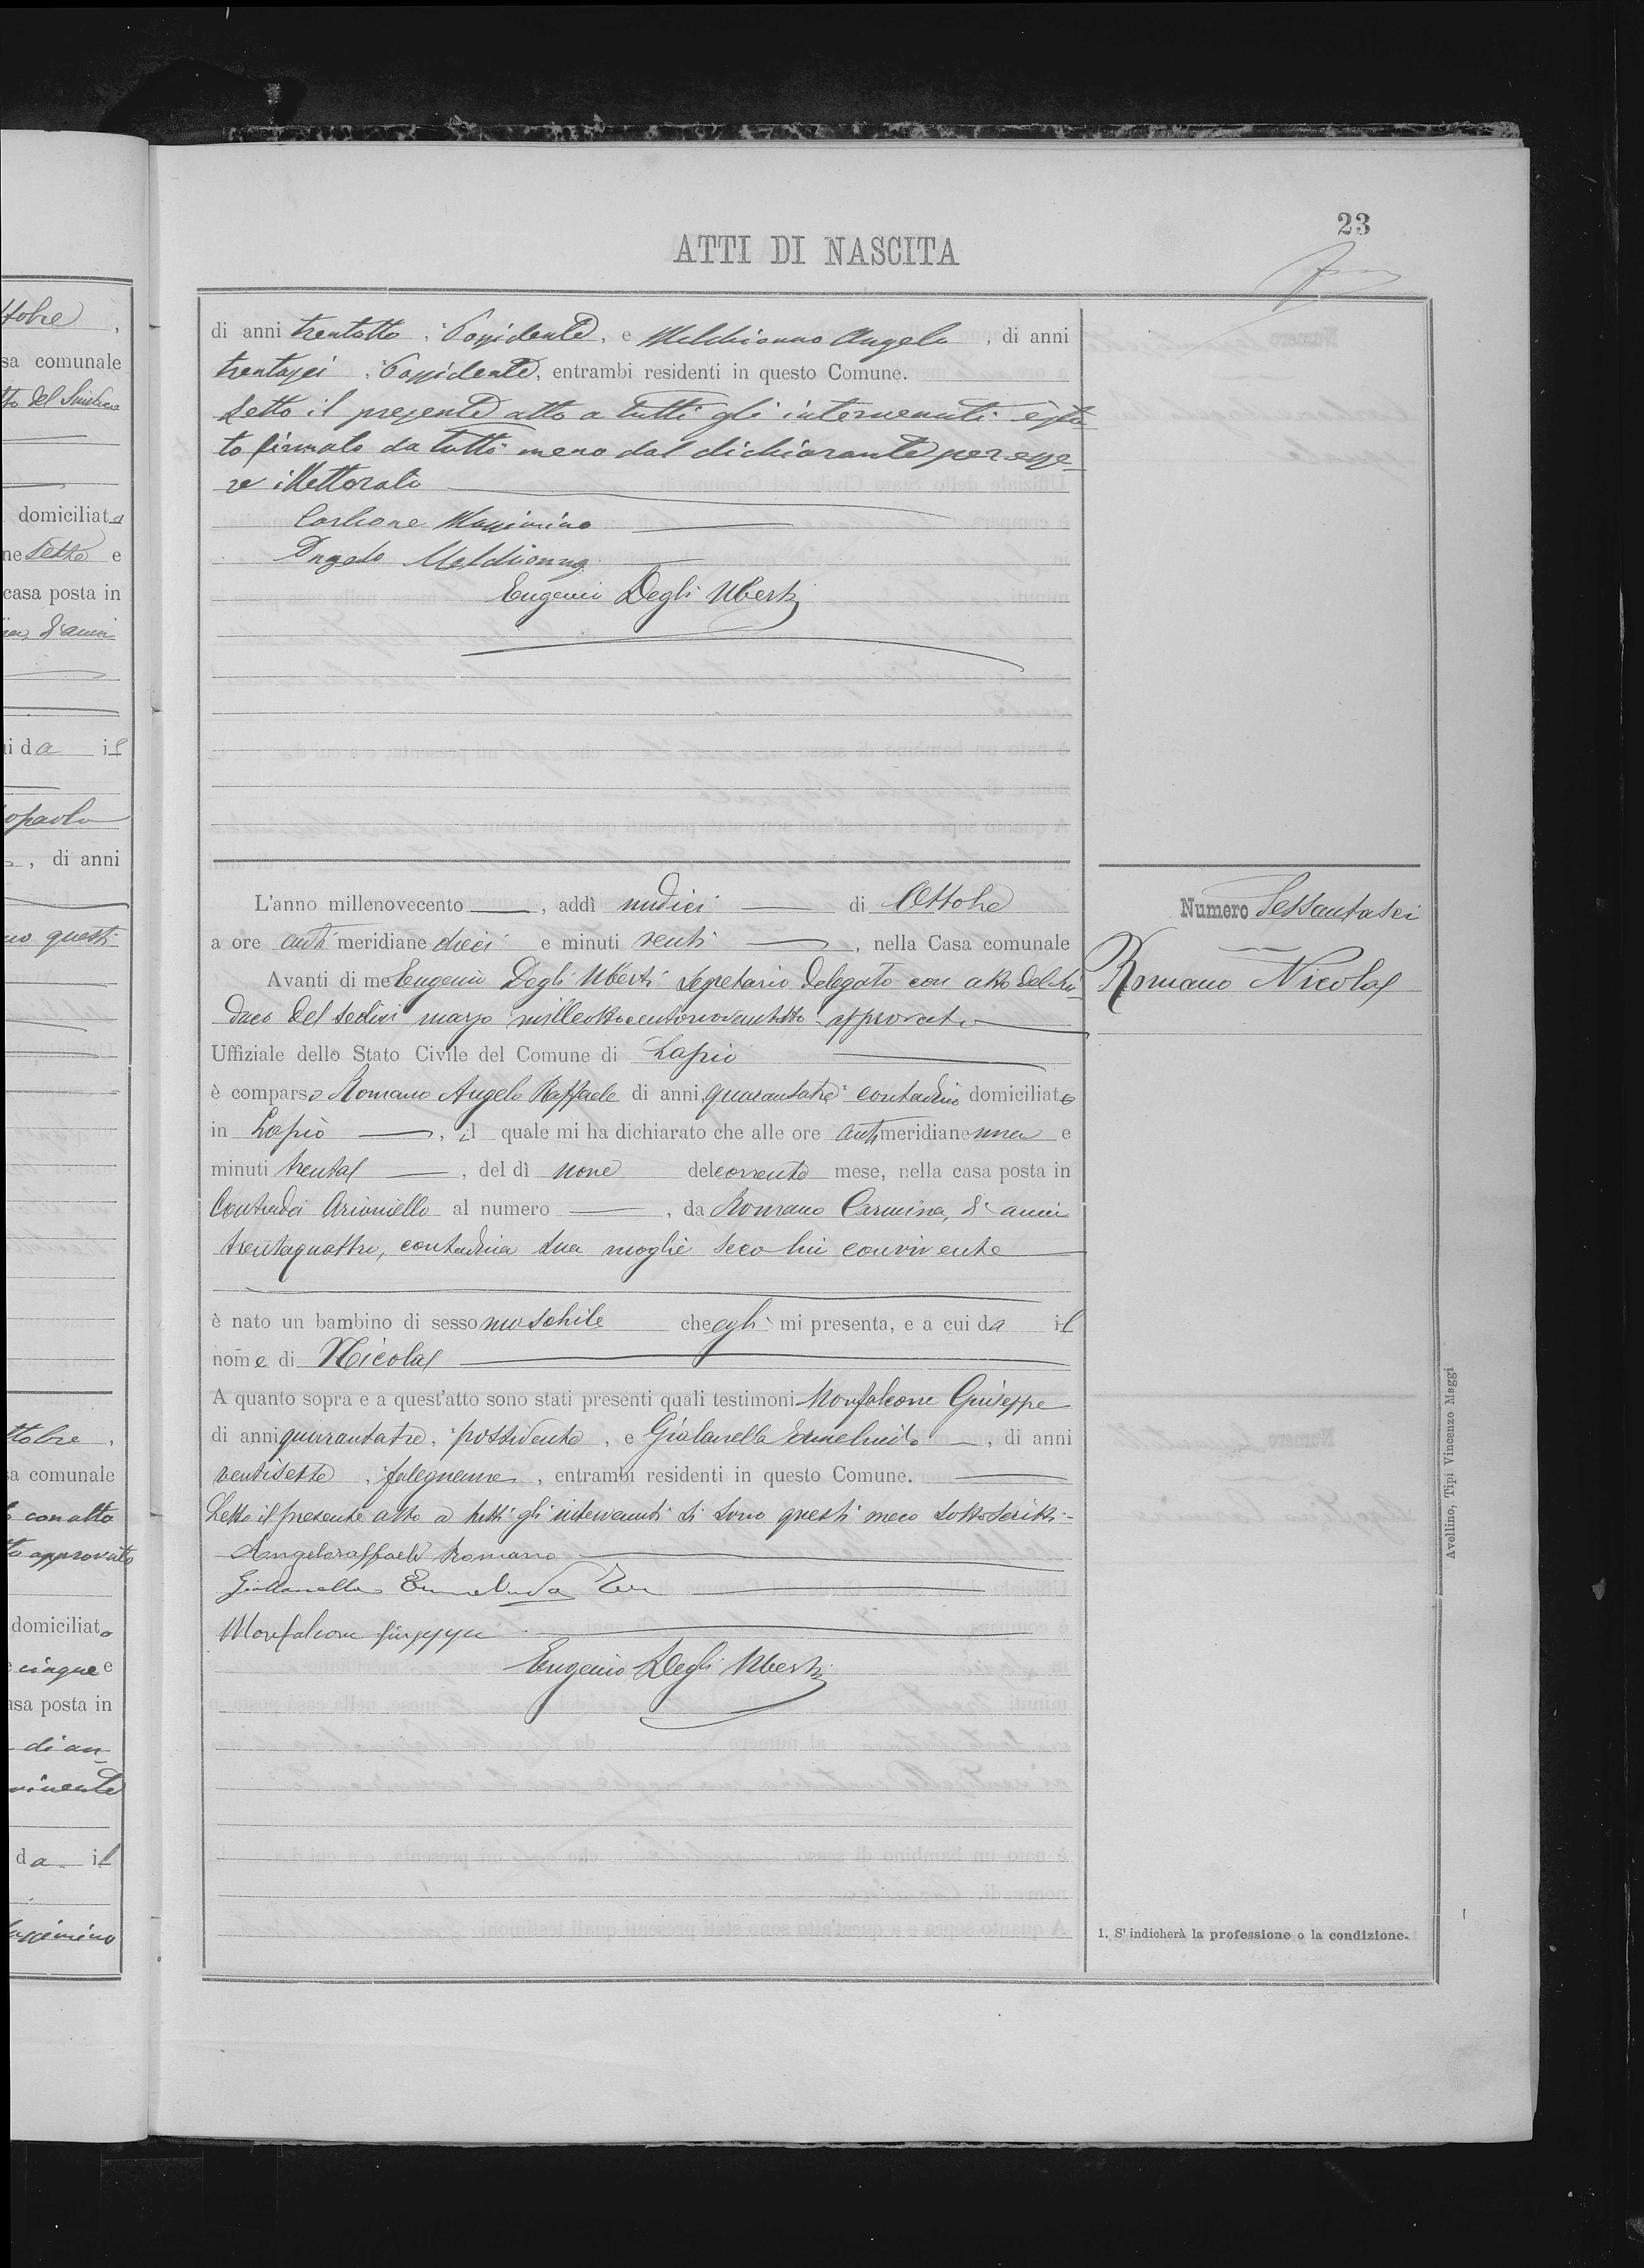 23
ATTI DI NASCITA
di anni trentotto, Possidente, e Melchionno Angelo, di anni
trentasei, Possidente, entrambi residenti in questo Comune.
Letto il presente atto a tutti gli intervenuti è sta-
to firmato da tutti meno dal dichiarante per esse-
re illetterato
Carbone Massimino
Angelo Melchionno
Eugenio Degli Uberti
L'anno millenovecento, addì undici di Ottobre
a ore anti meridiane dieci e minuti venti, nella Casa comunale
Avanti di me Eugenio Degli Uberti Segretario delegato con atto del Sin-
daco del sedici marzo milleottocentonovantotto approvato
Uffiziale dello Stato Civile del Comune di Lapio
è comparso Romano Angelo Raffaele di anni, quarantatre contadino domiciliato
in Lapio, il quale mi ha dichiarato che alle ore anti meridiane una e
minuti trenta, del dì nove del corrente mese, nella casa posta in
Contrada Arioniello al numero, da Romano Carmina, d'anni
trentaquattro, contadina sua moglie seco lui convivente
è nato un bambino di sesso maschile che egli mi presenta, e a cui da il
nome di Nicola
A quanto sopra e a quest'atto sono stati presenti quali testimoni Monfalcone Giuseppe
di anni quarantatre, possidente, e Giolanella Ermelindo, di anni
ventisette, falegname, entrambi residenti in questo Comune.
Letto il presente atto a tutti gli intervenuti si sono questi meco sottoscritti-
Angeloraffaele Romano
Giollanella
Monfalcone Giuseppe
Eugenio Degli Uberti
Numero Sessantasei
Romano Nicola
1. S'indicherà la professione o la condizione.
Avellino, Tipi Vincenzo Maggi
ttobre,
sa comunale
to del Sindaco
domiciliata
ne sette e
casa posta in
d'anni
i da il
opaolo
, di anni
no questi
ttobre,
a comunale
con atto
to approvato
domiciliato
cinque e
asa posta in
di an-
vivente
da il
assimino